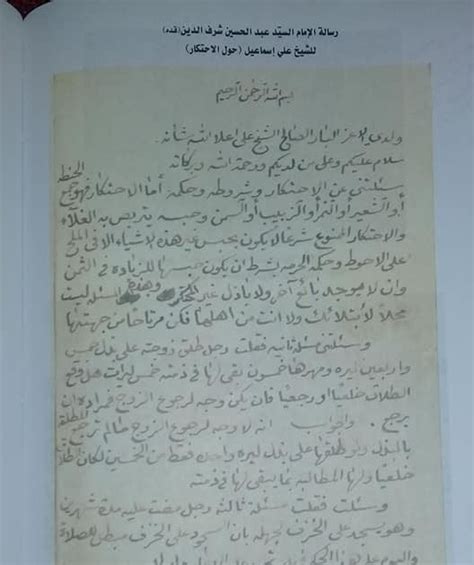 رسالة الإمام السيّد عبد الحسين شرف الدين (قده)
للشيخ علي إسماعيل (حول الاحتكار)
بسم الله الرحمن الرحيم
ولدي الاعز البار الصالح الشيخ علي اعلا الله شأنه
سلام عليكم وعلى من لديكم ورحمة الله وبركاته
سئلتني عن الاحتكار وشروطه وحكمه أما الاحتكار فهو جمع الحنطة
أو الشعير أو التمر أو الزبيب أو السمن وحبسه يتربص به الغلاء
والاحتكار الممنوع شرعا لا يكون بحبس غير هذه الاشياء الا في الملح
على الاحوط وحكمه الحرمة بشرط ان يكون حبسها للزيادة في الثمن
وان لا يوجد بائع آخر ولا باذل غير المحتكر وهذه المسئلة ليست
محلا لابتلائك ولا انت من اهلها فكن مرتاحا من جهتها
وسئلتني مسئلة ثانية فقلت رجل طلق زوجته على بذل خمس
واربعين ليره ومهرها خمسون بقى لها في ذمته خمس ليرات هل وقع
الطلاق خلعيا او رجعيا فان يكن وجه لرجوع الزوج فمراده ان
يرجع. والجواب انه لا وجه لرجوع الزوج ما لم ترجع المطلقة
بالبذل ولو طلقها على بذل ليره واحدة فقط من الخمسين لكان طلاقا
خلعيا ولها المطالبة بما يبقى لها في ذمته
وسئلت فقلت مسئلة ثالثة رجل مضت عليه مدة شهرين
وهو يسجد على الخزف لجهله بان السجود على الخزف مبطل للصلاة